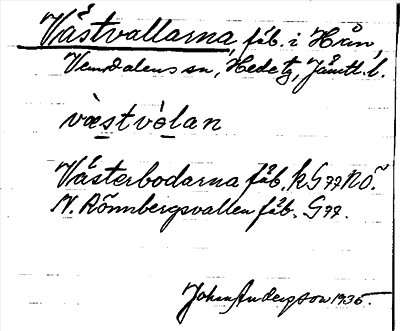 Västvallarna, fäb. i Hån,
Vemdalens sn, Hede tg, Jämtl. l.
væ̀stvòlan
Västerbodarna fäb. k G77 NÖ.
N. Rönnbergsvallen fäb. G77.
John Anderson 1935.